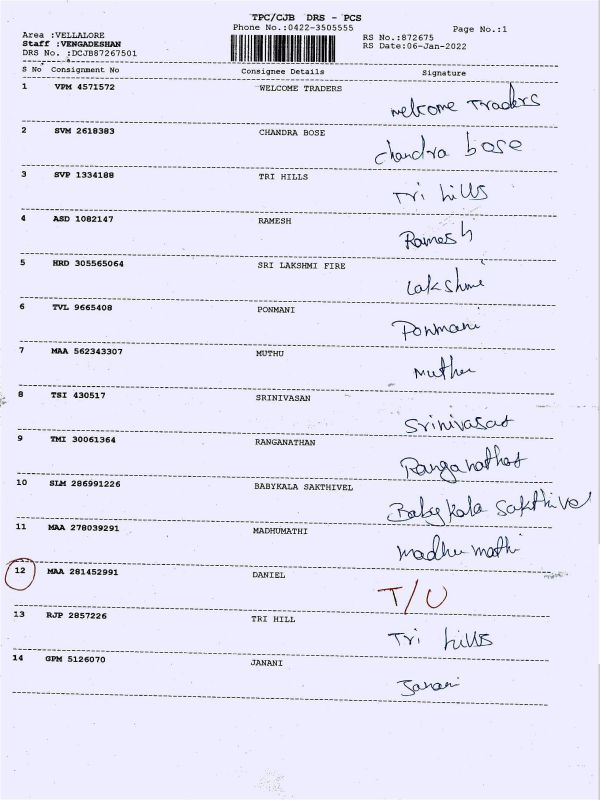 TPC/CJB DRS - PCS
Phone No.:0422-3505555
Page No.:1
Area :VELLALORE
Staff :VENGADESHAN
DRS No. :DCJB87267501
RS No.:872675
RS Date:06-Jan-2022
S No Consignment No Consignee Details Signature
1 VPM 4571572 WELCOME TRADERS
welcome Traders
2 SVM 2618383 CHANDRA BOSE
chandra bose
3 SVP 1334188 TRI HILLS
Tri hills
4 ASD 1082147 RAMESH
Ramesh
5 HRD 305565064 SRI LAKSHMI FIRE
Lakshmi
6 TVL 9665408 PONMANI
Ponmani
7 MAA 562343307 MUTHU
Muthu
8 TSI 430517 SRINIVASAN
Srinivasan
9 TMI 30061364 RANGANATHAN
Ranganathan
10 SLM 286991226 BABYKALA SAKTHIVEL
Babykala sakthive
11 MAA 278039291 MADHUMATHI
madhu mathi
12 MAA 281452991 DANIEL
T/U
13 RJP 2857226 TRI HILL
Tri hills
14 GPM 5126070 JANANI
Janani